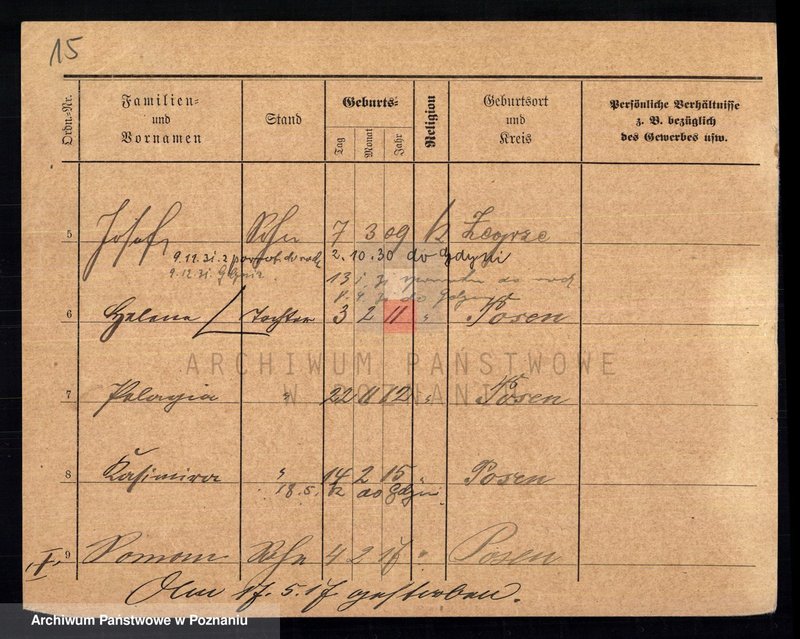 15
Ordn.-Nr.
Familien- und Vornamen
Stand
Geburts-
Tag
Monat
Jahr
Religion
Geburtsort und Kreis
Persönliche Verhältnisse z. B. bezüglich des Gewerbes usw.
5 Josef Sohn 7 3 09 k Zegrze
2.10.30 do Gdyni
9.11.31. z powrot. do rodz
9.12.31. Gdynia.
do rodz
do Gdyni
6 Helena Tochter 3 2 11 " Posen
ARCHIWUM PAŃSTWOWE
W POZNANIU
7 Pelagia " 22 11 12 " Posen
8 Kasimira " 14 2 15 Posen
18.5. do Gdyni
9 Roman Sohn 4 2 17 " Posen
Am 17.5.17 gestorben.
Archiwum Państwowe w Poznaniu